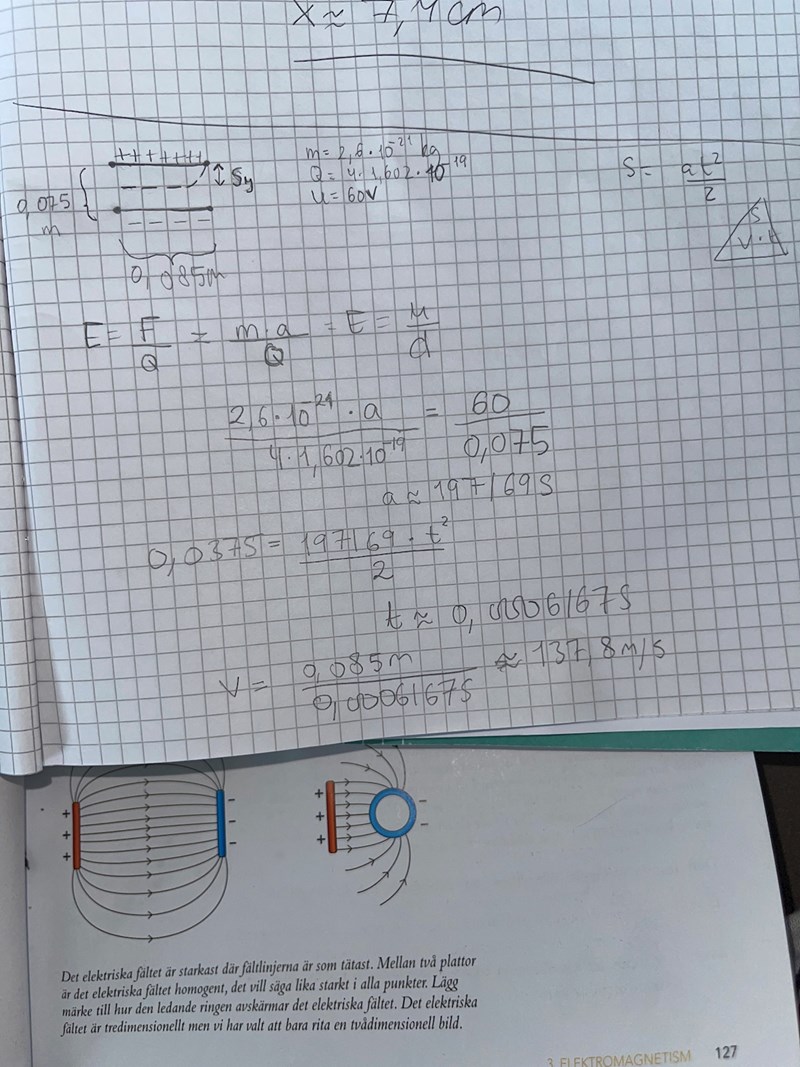 X ≈ 7,4 cm
+++++++
Sy
0,075
m
0,085m
m = 2,6 · 10⁻²¹ kg
Q = 4 · 1,602 · 10⁻¹⁹
U = 60V
S = at²/2
S
V · t
E = F/Q = m·a/Q = E = U/d
2,6 · 10⁻²¹ · a / 4 · 1,602 · 10⁻¹⁹ = 60 / 0,075
a ≈ 197169S
0,0375 = 197169 · t² / 2
t ≈ 0,0006167S
V = 0,085m / 0,0006167S ≈ 137,8 m/s
Det elektriska fältet är starkast där fältlinjerna är som tätast. Mellan två plattor
är det elektriska fältet homogent, det vill säga lika starkt i alla punkter. Lägg
märke till hur den ledande ringen avskärmar det elektriska fältet. Det elektriska
fältet är tredimensionellt men vi har valt att bara rita en tvådimensionell bild.
3 ELEKTROMAGNETISM 127